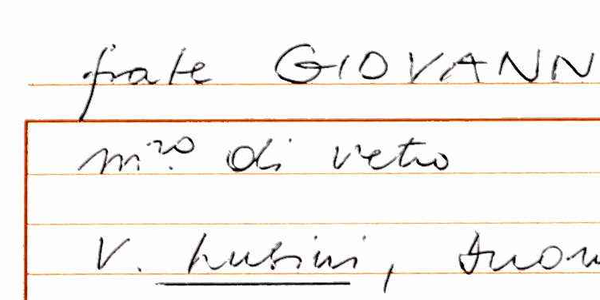 frate GIOVANN
m.ro di vetro
V. Lusini, Duom